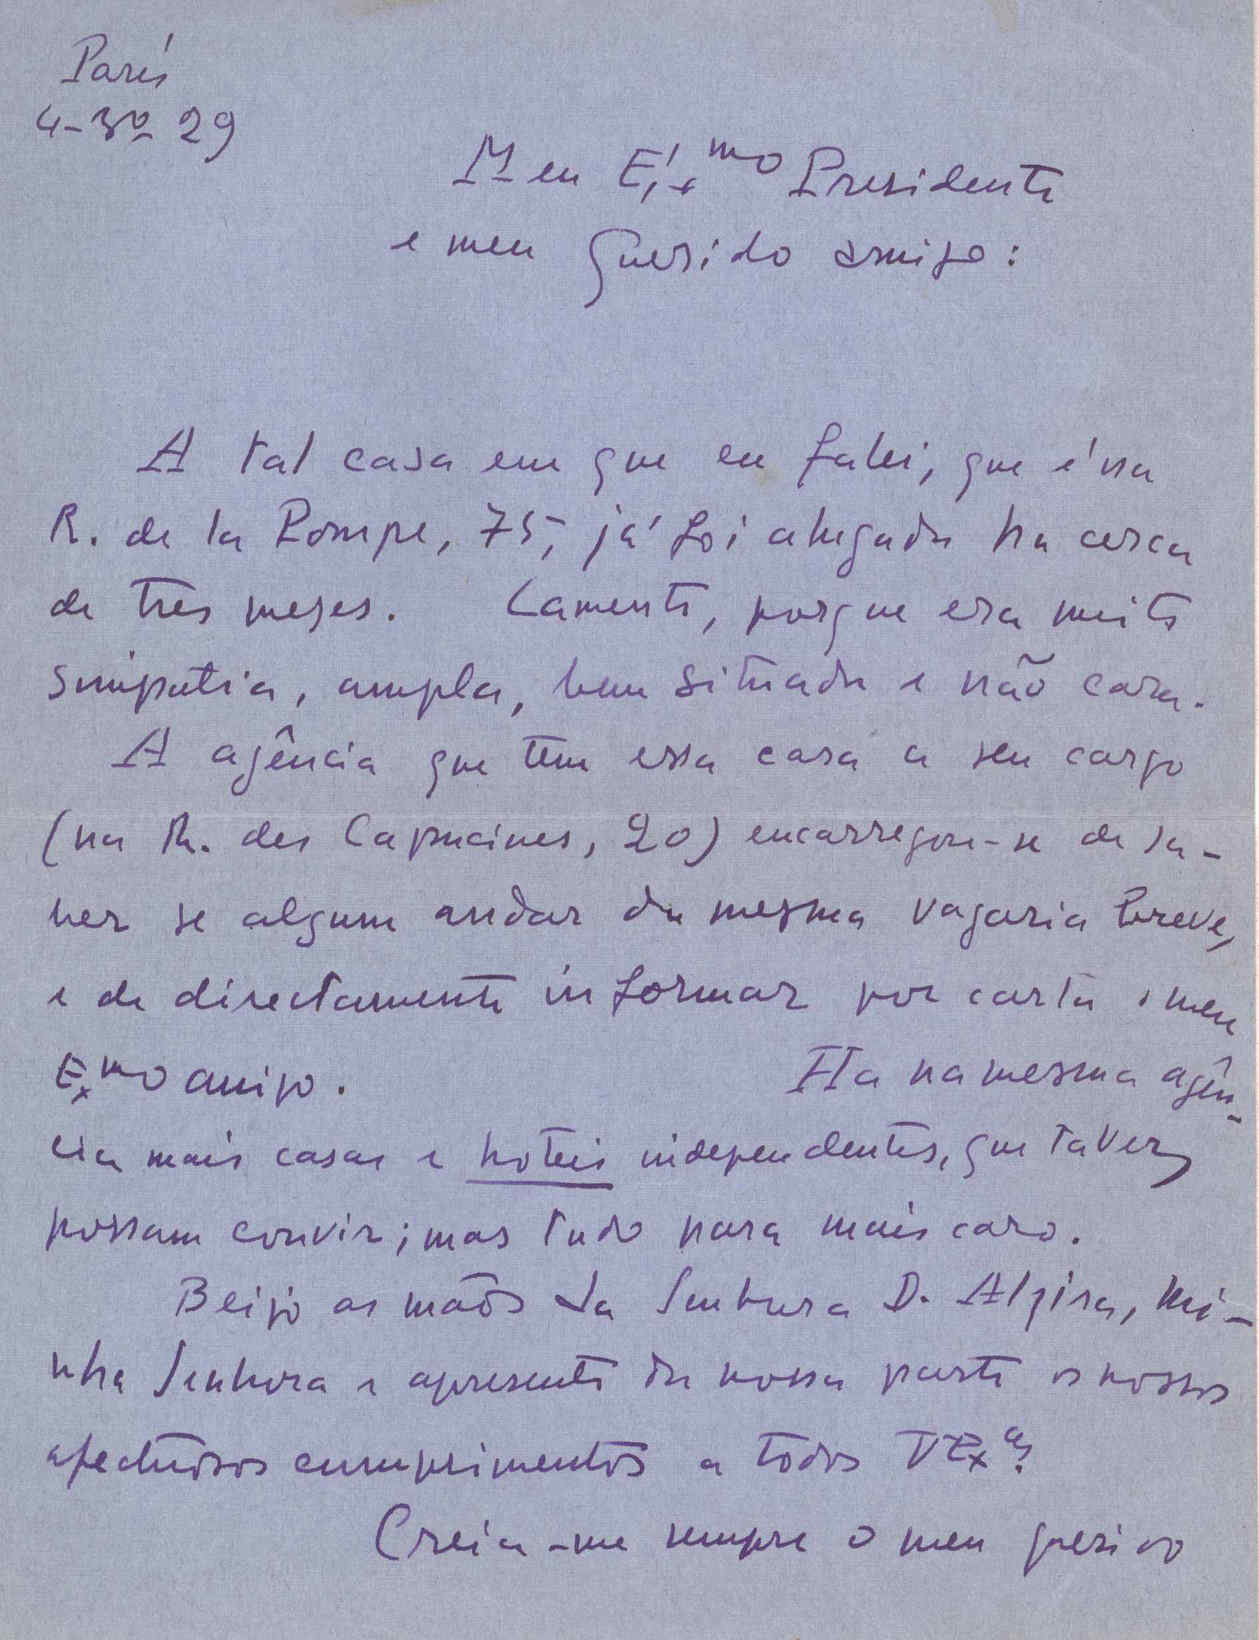 Paris
4-3º 29
Meu Ex.mo Presidente
e meu Querido amigo:
A tal casa em que eu falei, que é na
R. de la Pompe, 75, já foi alugada ha cerca
de três meses. Lamento, porque era muito
simpatica, ampla, bem situada e não cara.
A agência que tem essa casa a seu cargo
(na R. des Capucines, 20) encarregou-se de sa-
ber se algum andar da mesma vagaria breve,
e de directamente informar por carta o meu
Ex.mo amigo. Ha na mesma agên-
cia mais casas e hoteis independentes, que talvez
possam convir; mas tudo para mais caro.
Beijo as mãos da Senhora D. Alzira, mi-
nha Senhora e apresento da nossa parte os nossos
afectuosos cumprimentos a todos V Ex.as
Creia-me sempre o meu querido